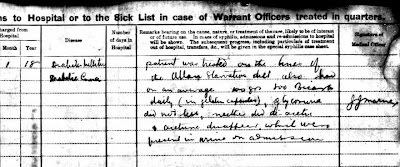 ns to Hospital or to the Sick List in case of Warrant Officers treated in quarters.
charged from Hospital
Month
Year
Disease
Number of days in Hospital
Remarks bearing on the cause, nature, or treatment of the case, likely to be of interest or of future use. In cases of syphilis, admissions and re-admissions to hospital will be shown. The subsequent progress, including particulars of treatment out of hospital, transfers, &c., will be given in the special syphilis case sheet.
Signature of Medical Officer
1 18 Diabetes
Diabetic Coma
patient was treated on the lines of
the Allen Starvation diet also had
on an average
daily (in capsules), glycosuria
did not, neither did di-acetic
& acetone disappear which were
present in urine on admission